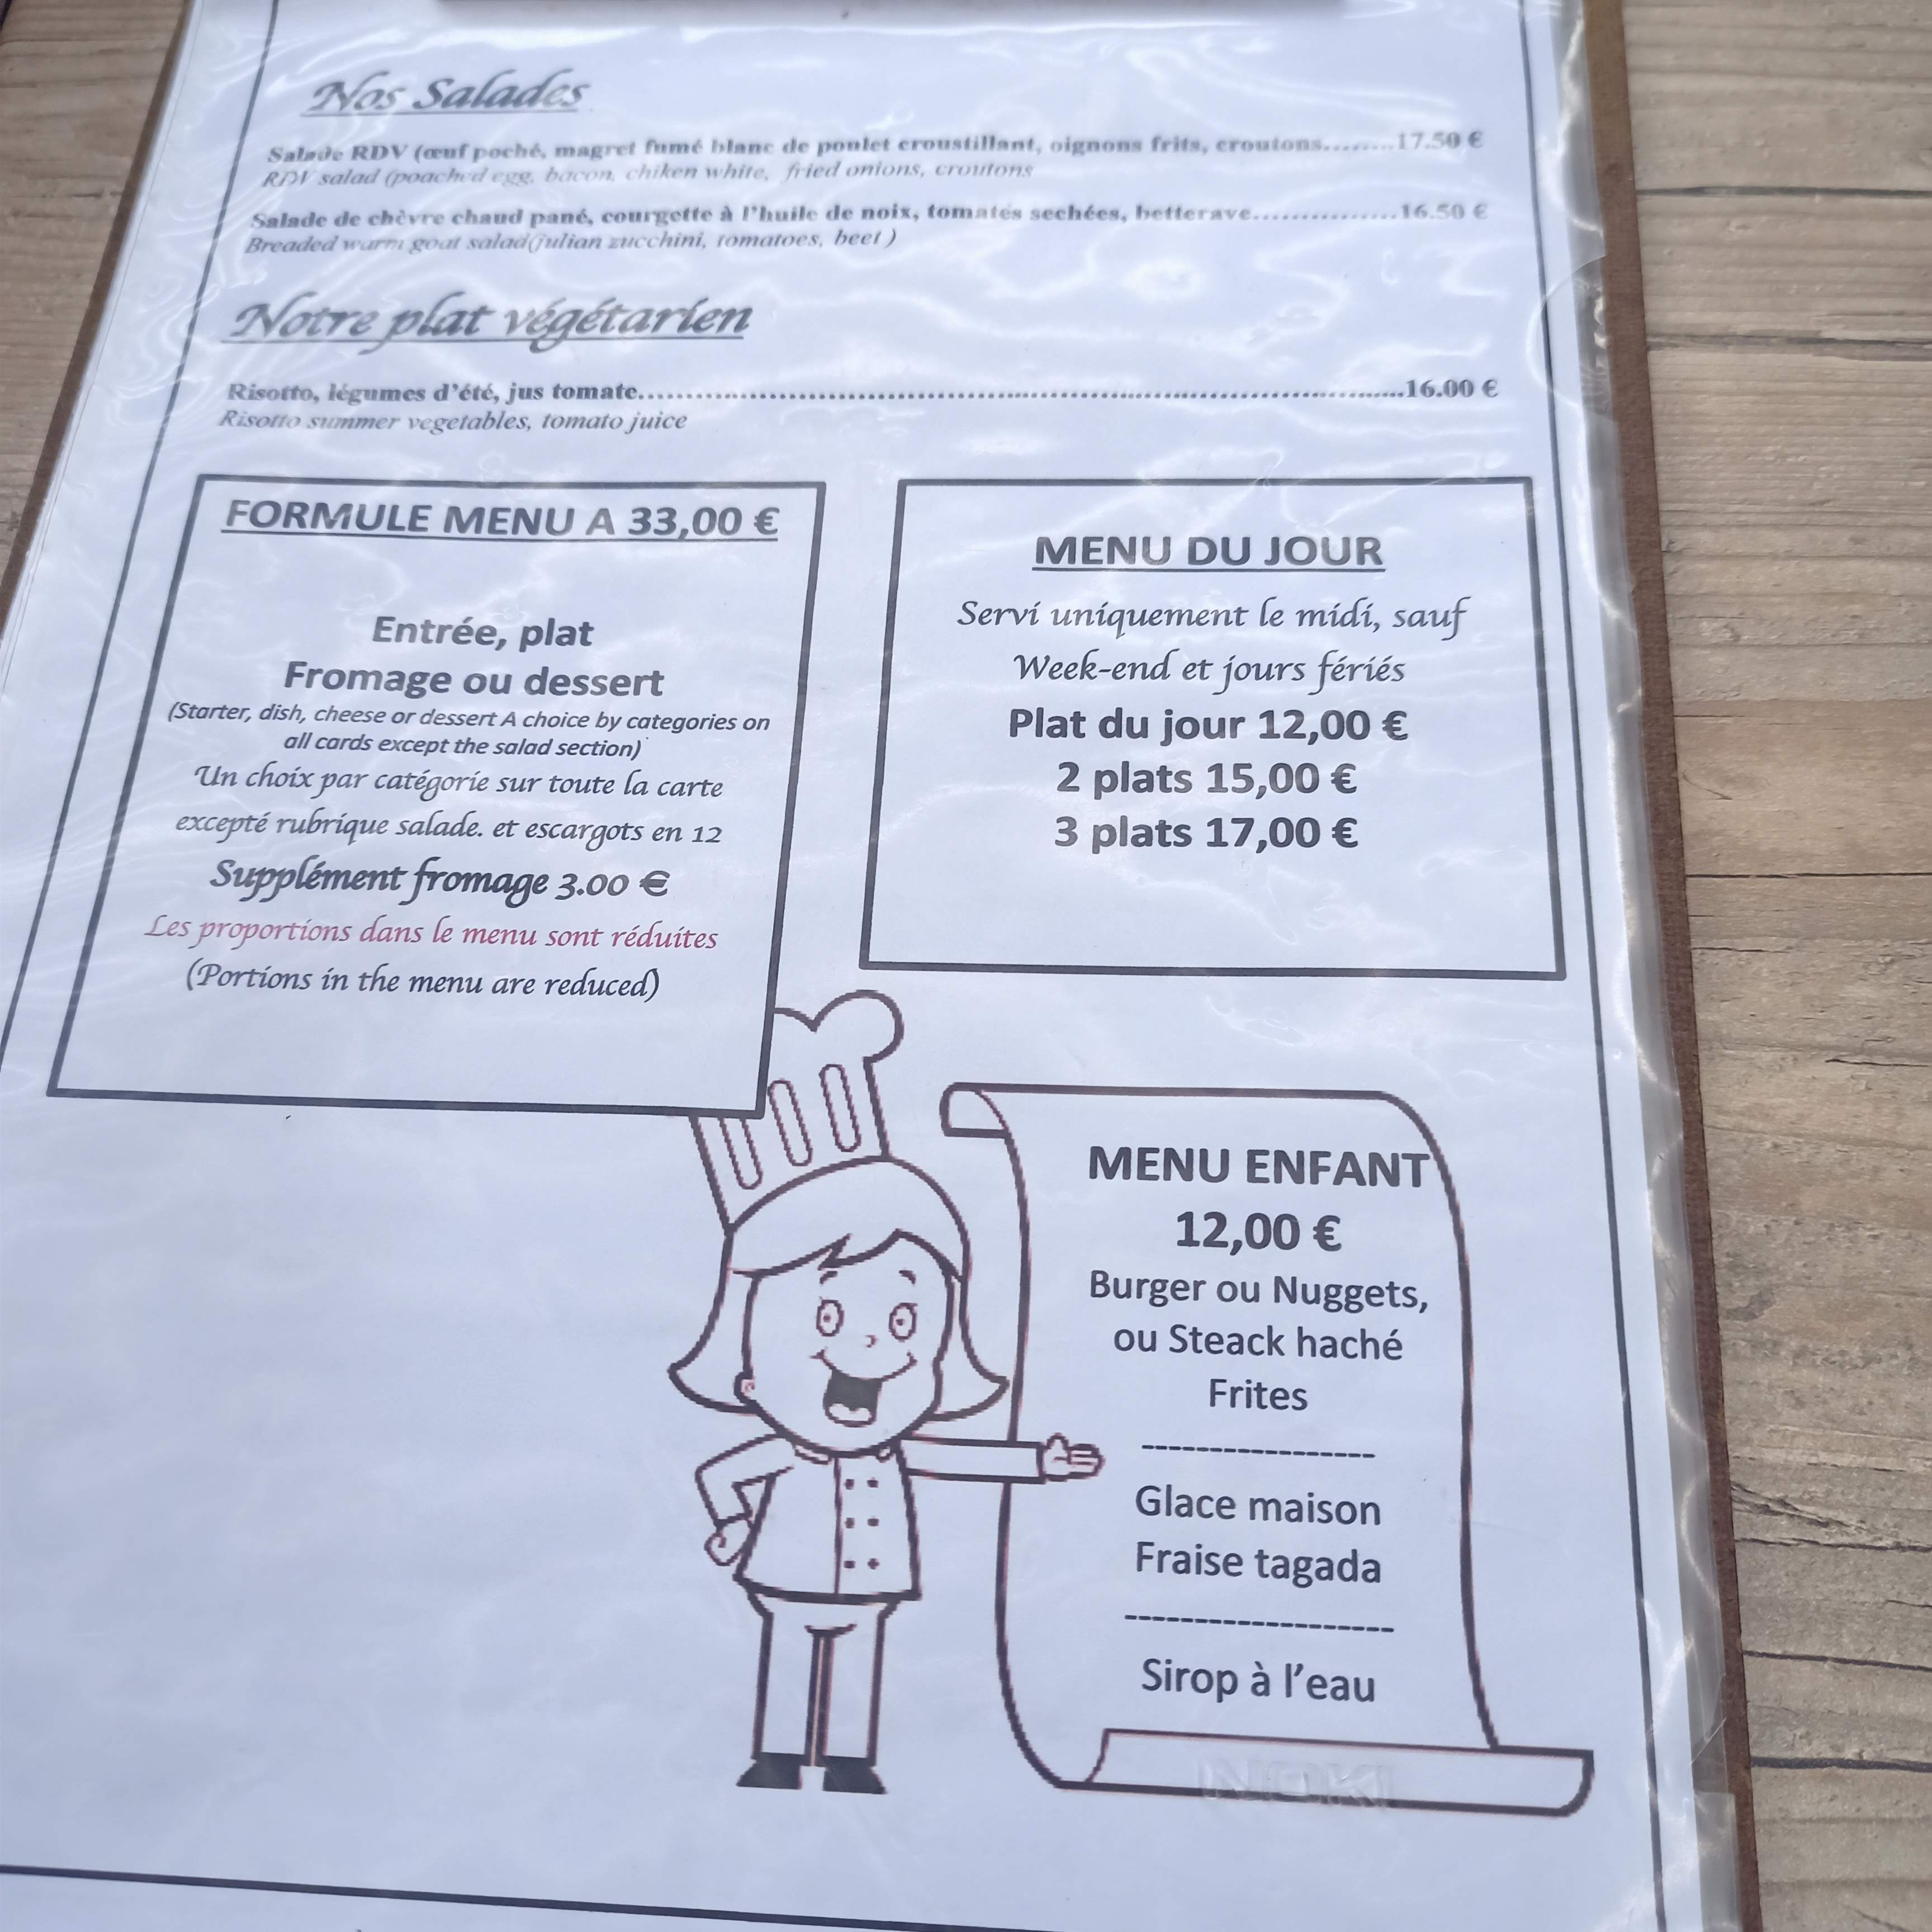 Nos Salades
Salade RDV (œuf poché, magret fumé blanc de poulet croustillant, oignons frits, croutons........17.50 €
RDV salad (poached egg, bacon, chiken white, fried onions, croutons
Salade de chèvre chaud pané, courgette à l'huile de noix, tomates sechées, betterave................16.50 €
Breaded warm goat salad(julian zucchini, tomatoes, beet )
Notre plat végétarien
Risotto, légumes d'été, jus tomate......................................................................................16.00 €
Risotto summer vegetables, tomato juice
FORMULE MENU A 33,00 €
Entrée, plat
Fromage ou dessert
(Starter, dish, cheese or dessert A choice by categories on
all cards except the salad section)
Un choix par catégorie sur toute la carte
excepté rubrique salade. et escargots en 12
Supplément fromage 3.00 €
Les proportions dans le menu sont réduites
(Portions in the menu are reduced)
MENU DU JOUR
Servi uniquement le midi, sauf
Week-end et jours fériés
Plat du jour 12,00 €
2 plats 15,00 €
3 plats 17,00 €
MENU ENFANT
12,00 €
Burger ou Nuggets,
ou Steack haché
Frites
-----------------
Glace maison
Fraise tagada
-------------------
Sirop à l'eau